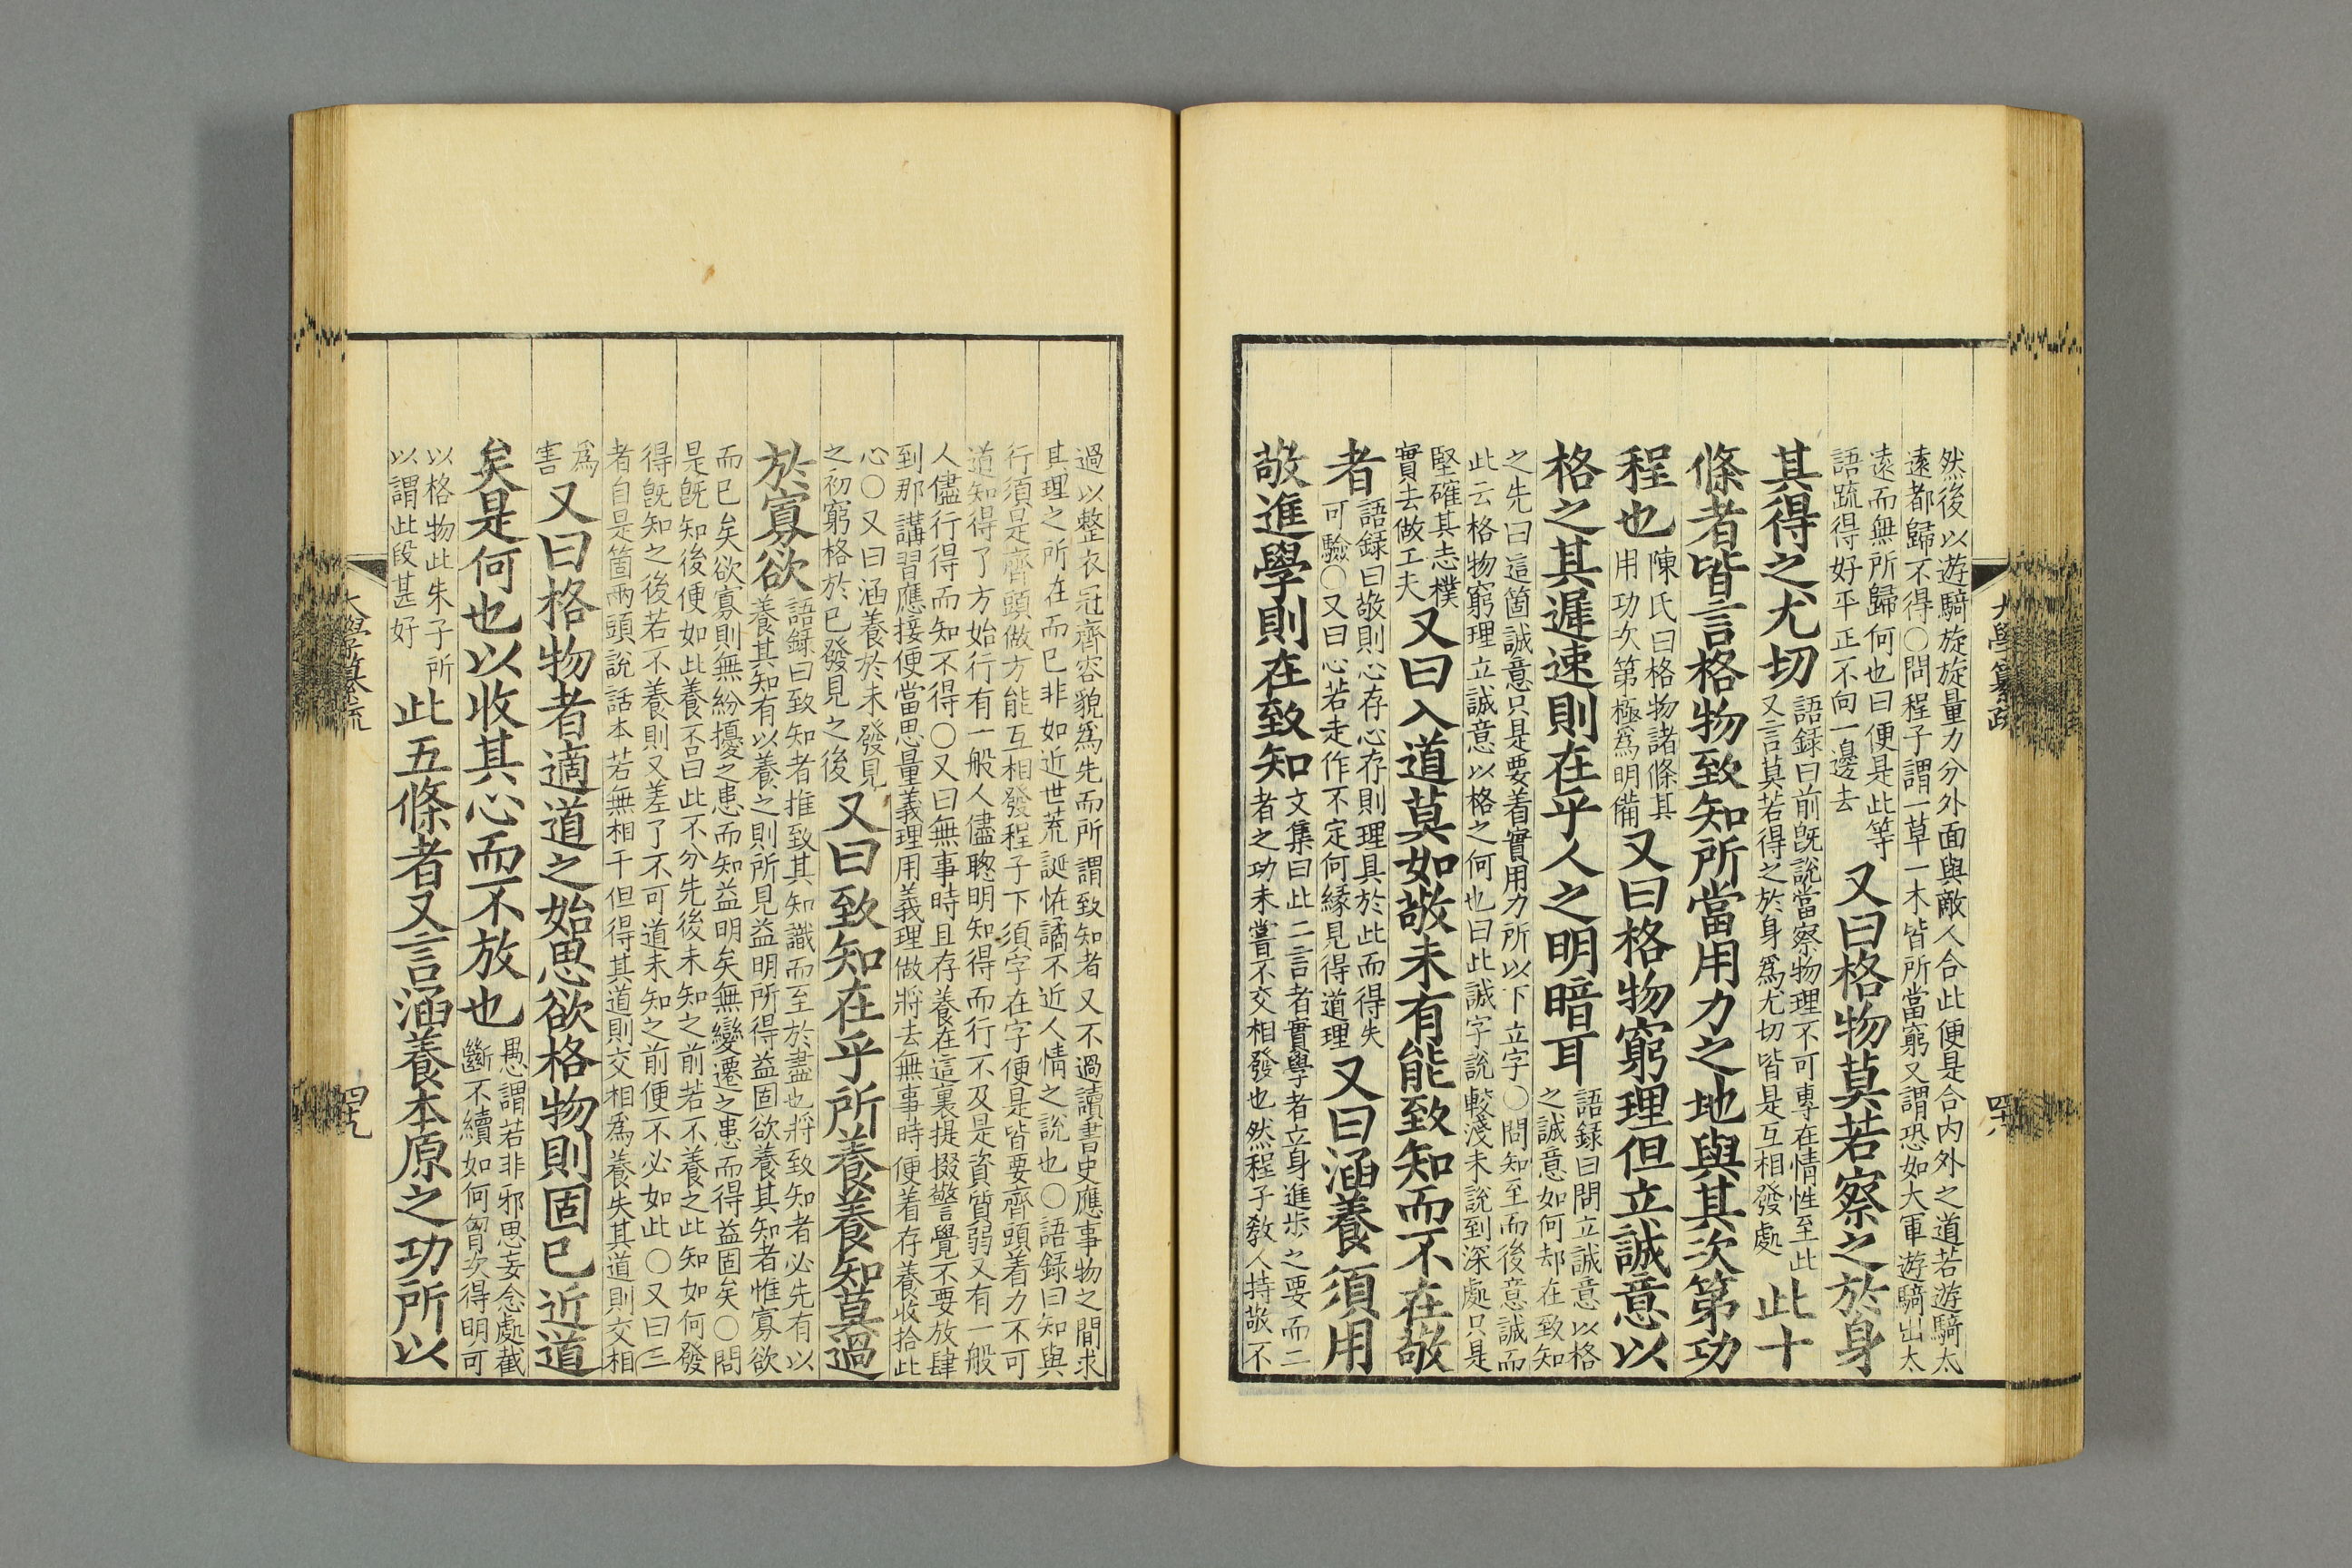 然後以遊騎旋旋量力分外面與敵人合此便是合内外之道若遊騎太
遠都歸不得○問程子謂一草一木皆所當窮又謂恐如大軍遊騎出太
遠而無所歸何也曰便是此等
語䟽得好平正不向一邊去
又曰格物莫若察之於身
其得之尤切
語錄曰前旣說當察物理不可專在情性至此
又言莫若得之於身爲尤切皆是互相發處
此十
條者皆言格物致知所當用力之地與其次第功
程也
陳氏曰格物諸條其
用功次第極爲明備
又曰格物窮理但立誠意以
格之其遲速則在乎人之明暗耳
語錄曰問立誠意以格
之誠意如何却在致知
之先曰這箇誠意只是要着實用力所以下立字○問知至而後意誠而
此云格物窮理立誠意以格之何也曰此誠字說較淺未說到深處只是
堅確其志樸
實去做工夫
又曰入道莫如敬未有能致知而不在敬
者
語錄曰敬則心存心存則理具於此而得失
可驗○又曰心若走作不定何緣見得道理
又曰涵養須用
敬進學則在致知
文集曰此二言者實學者立身進步之要而二
者之功未嘗不交相發也然程子敎人持敬不
大學纂疏
四十八
過以整衣冠齊容貌爲先而所謂致知者又不過讀書史應事物之間求
其理之所在而已非如近世荒誕恠譎不近人情之說也○語錄曰知與
行須是齊頭做方能互相發程子下須字在字便是皆要齊頭着力不可
道知得了方始行有一般人儘聰明知得而行不及是資質弱又有一般
人儘行得而知不得○又曰無事時且存養在這裏提掇警覺不要放肆
到那講習應接便當思量義理用義理做將去無事時便着存養收拾此
心○又曰涵養於未發見
之初窮格於已發見之後
又曰致知在乎所養養知莫過
於寡欲
語錄曰致知者推致其知識而至於盡也將致知者必先有以
養其知有以養之則所見益明所得益固欲養其知者惟寡欲
而已矣欲寡則無紛擾之患而知益明矣無變遷之患而得益固矣○問
是旣知後便如此養否曰此不分先後未知之前若不養之此知如何發
得旣知之後若不養則又差了不可道未知之前便不必如此○又曰三
者自是箇兩頭說話本若無相干但得其道則交相爲養失其道則交相
爲
害
又曰格物者適道之始思欲格物則固已近道
矣是何也以收其心而不放也
愚謂若非邪思妄念處截
斷不續如何胷次得明可
以格物此朱子所
以謂此段甚好
此五條者又言涵養本原之功所以
大學纂疏
四十九